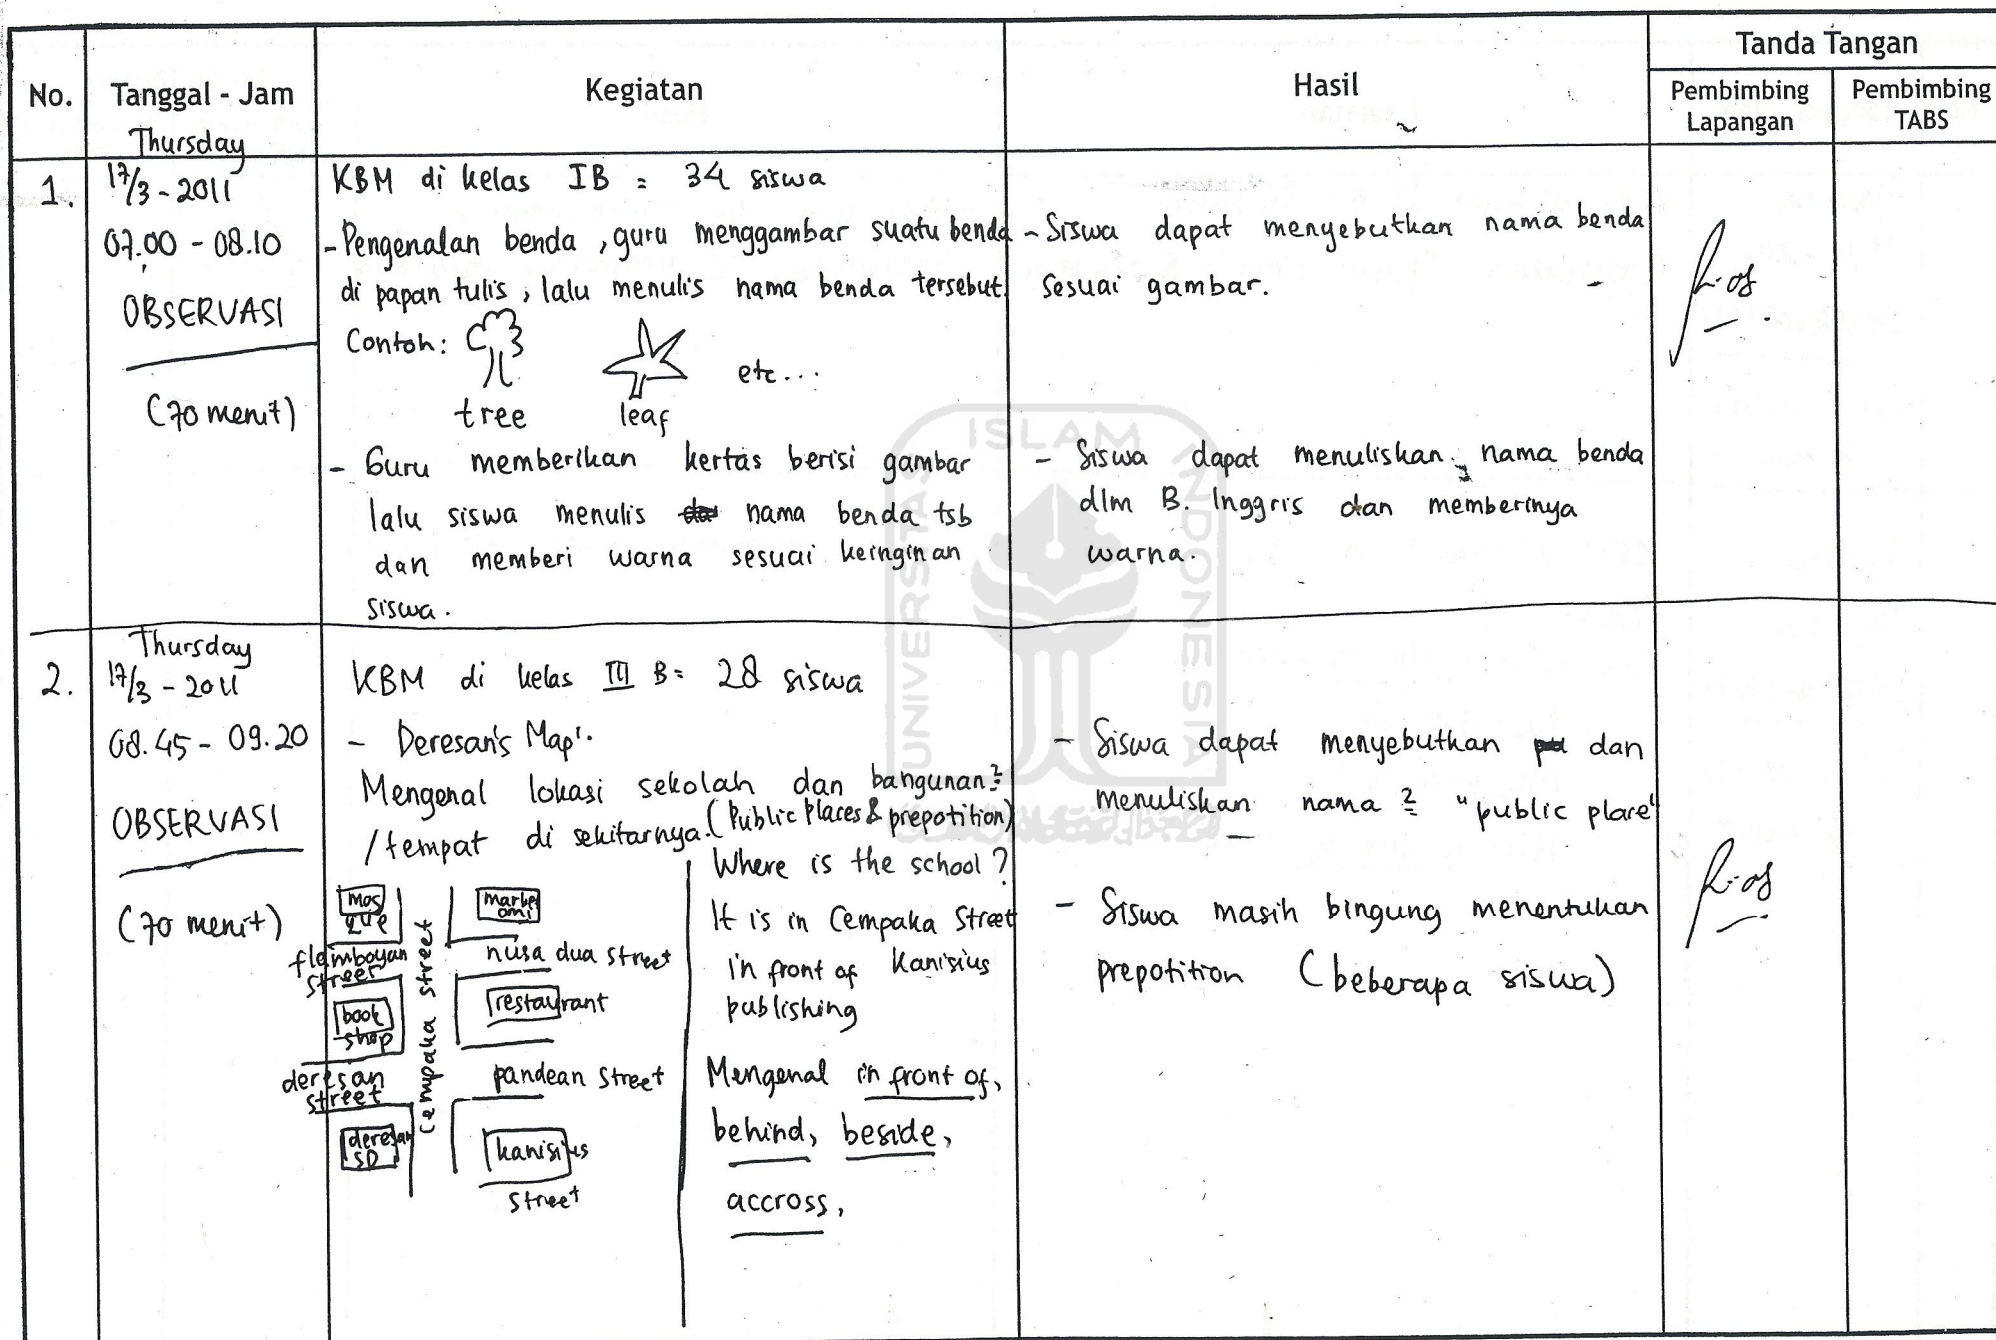 No.
Tanggal - Jam
Kegiatan
Hasil
Tanda Tangan
Pembimbing Lapangan
Pembimbing TABS
1.
Thursday
17/3 - 2011
07.00 - 08.10
OBSERVASI
(70 menit)
KBM di kelas IB = 34 siswa
- Pengenalan benda, guru menggambar suatu benda
di papan tulis, lalu menulis nama benda tersebut.
Contoh:
etc...
tree
leaf
- Guru memberikan kertas berisi gambar
lalu siswa menulis nama benda tsb
dan memberi warna sesuai keinginan
siswa.
- Siswa dapat menyebutkan nama benda
sesuai gambar.
- Siswa dapat menuliskan nama benda
dlm B. Inggris dan memberinya
warna.
2.
Thursday
17/3 - 2011
08.45 - 09.20
OBSERVASI
(70 menit)
KBM di kelas III B = 28 siswa
- Deresan's Map'.
Mengenal lokasi sekolah dan bangunan2
/tempat di sekitarnya. (Public Places & prepotition)
mosque
flamboyan
street
book
shop
deresan
street
deresan
SD
Cempaka street
nusa dua street
restaurant
pandean street
kanisius
street
Where is the school?
It is in Cempaka Street
in front of Kanisius
publishing
Mengenal in front of,
behind, beside,
accross,
- Siswa dapat menyebutkan dan
menuliskan nama 2 "public place"
- Siswa masih bingung menentukan
prepotition (beberapa siswa)
UNIVERSITAS ISLAM INDONESIA